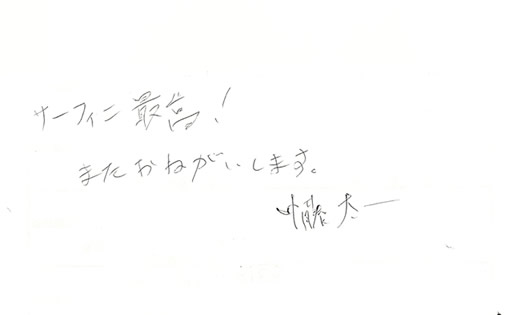 サーフィン最高!
またおねがいします。
藤太一